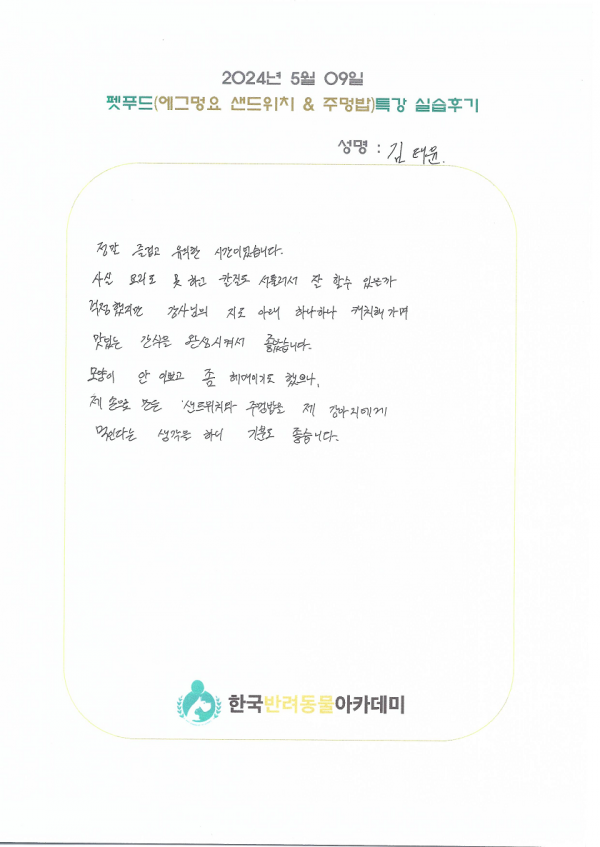 2024년 5월 09일
펫푸드(에그멍요 샌드위치 & 주멍밥)특강 실습후기
성명 : 김태윤.
정말 즐겁고 유익한 시간이었습니다.
사실 요리도 못 하고 칼질도 서툴러서 잘 할수 있는가
걱정했지만 강사님의 지도 아래 하나하나 캐치해 가며
맛있는 간식을 완성시켜서 좋았습니다.
모양이 안 이쁘고 좀 헤매이기도 했으나,
제 손으로 만든 샌드위치와 주멍밥을 제 강아지에게
먹인다는 생각을 하니 기분도 좋습니다.
한국반려동물아카데미